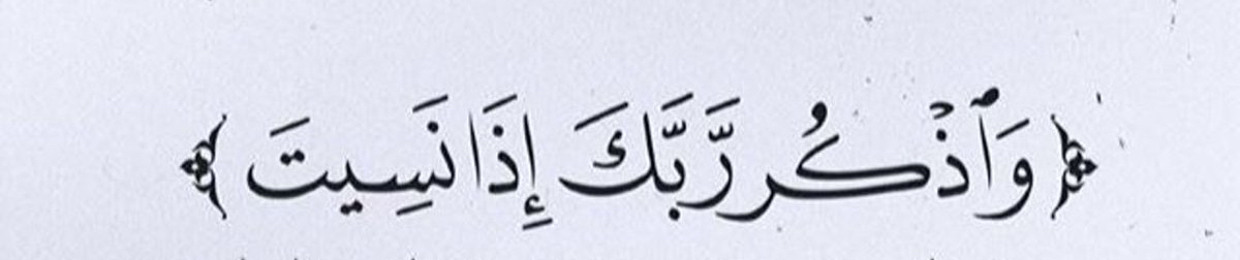 ﴿وَٱذۡكُر رَّبَّكَ إِذَا نَسِيتَ﴾